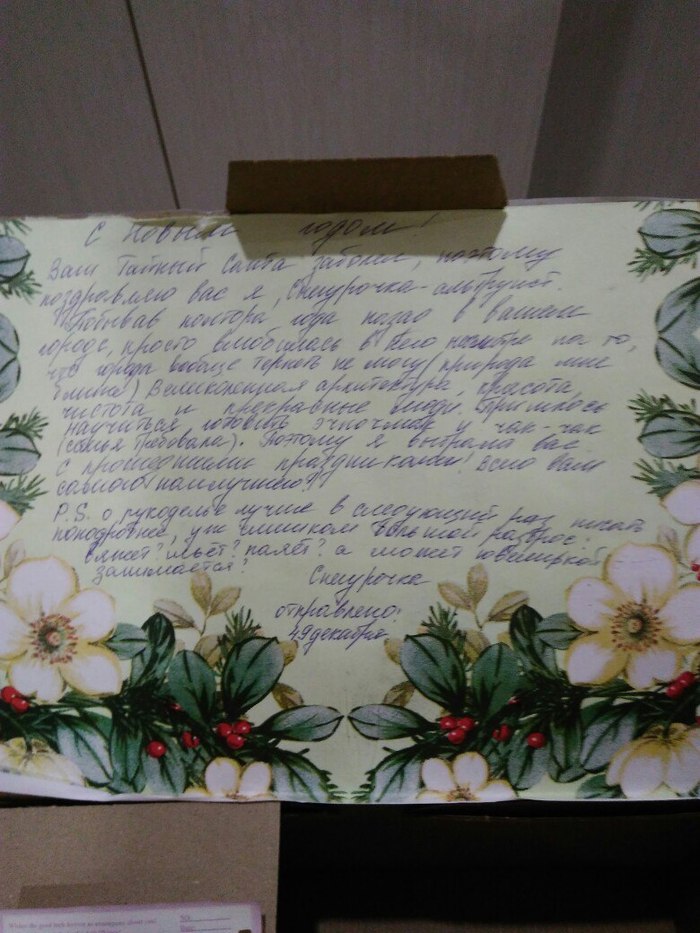 С Новым годом!
Ваш Тайный Санта заболел, поэтому
поздравляю вас я, Снегурочка-альтруист.
Побывав полтора года назад в вашем
городе, просто влюбилась в него несмотря на то,
что города вообще терпеть не могу (природа мне
ближе) Великолепная архитектура, красота,
чистота и прекрасные люди. Пришлось
научиться готовить эчпочмак и чак-чак
(семья требовала). Поэтому я выбрала вас.
С прошедшими праздниками! Всего Вам
самого наилучшего!!
P.S. о рукоделье лучше в следующий раз писать
поподробнее, уж слишком большой разброс:
вяжет? шьет? паяет? а может ювелиркой
занимается?
Снегурочка
отправлено:
49 декабря